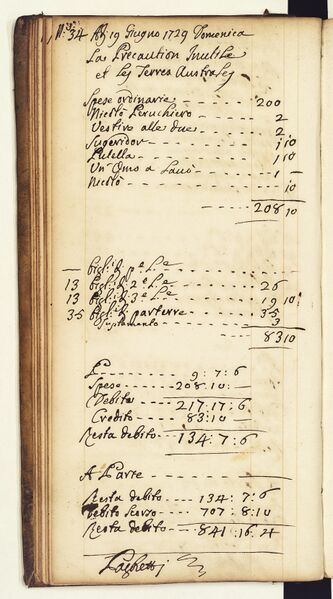 N.° 34 Adj 19 Giugno 1729 Domenica
La Precaution Inutile
et Les Terres Australes
Spese ordinarie - - - - - 200
Nicolò Peruchiero - - - - 2
Vestire alle due - - - - 2
Sugeridor - - - - 1 10
Putella - - - - 1 10
Un Omo a - - - - 1 —
Nicolò - - - - 10
208 10
— Bigl:
13 Bigl: 2.e L.e - - - - 26
13 Bigl: 3.e L.e - - - - 19 10
35 Bigl: Parterre - - - - 35
Suplamento - - - - 3
83 10
P - - - - 9 : 7 : 6
Spese - - - - 208 : 10 : —
Debito - - - - 217 : 17 : 6
Credito - - - - 83 : 10 : —
Resta debito - - - 134 : 7 : 6
A Parte
Resta debito - - - - 134 : 7 : 6
Debito Scorso - - - 707 : 8 : 10
Resta debito - - - 841 : 16 : 4